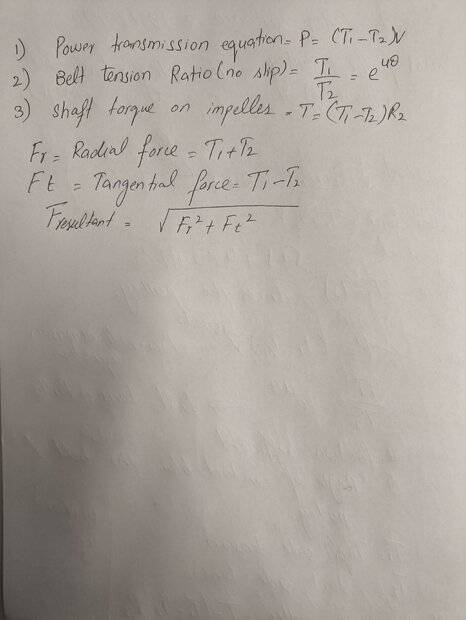 1) Power transmission equation = P = (T₁ - T₂)V
2) Belt tension Ratio (no slip) = T₁/T₂ = e^uθ
3) shaft torque on impeller = T = (T₁ - T₂)R₂
Fr = Radial force = T₁+T₂
Ft = Tangential force = T₁ - T₂
Fresultant = √Fr² + Ft²